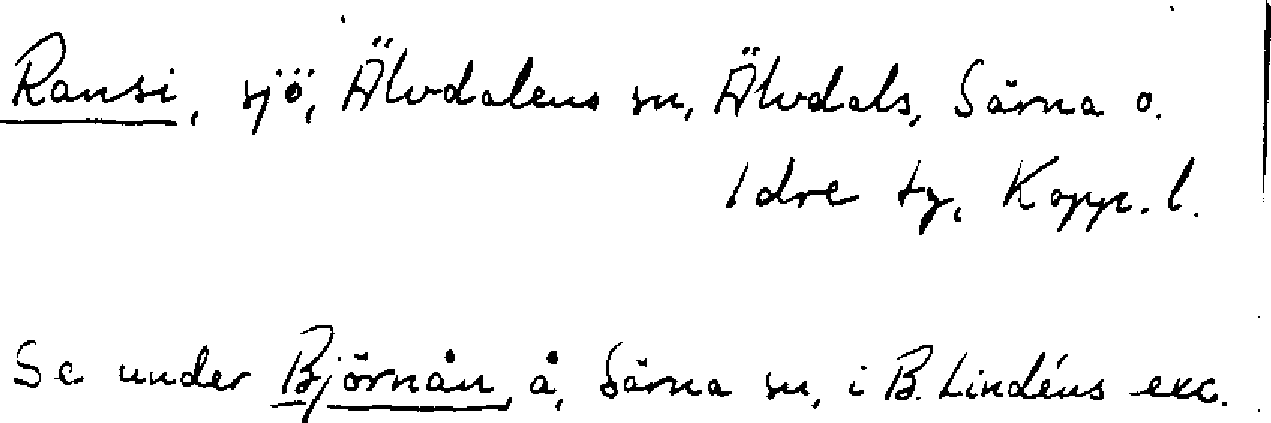 Ransi, sjö, Älvdalens sn, Älvdals, Särna o.
Idre tg, Kopp. l.
Se under Björnån, å, Särna sn, i B. Lindéns exc.